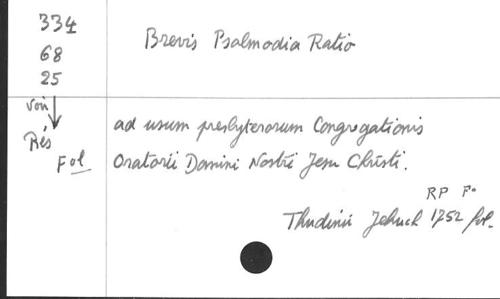 334
68
25
Brevis Psalmodia Ratio
voir
Rés
Fol
ad usum presbyterorum Congregationis
Oratorii Domini Nostri Jesu Christi.
RP Fo
Thudinii Jehuch 1752 fol.